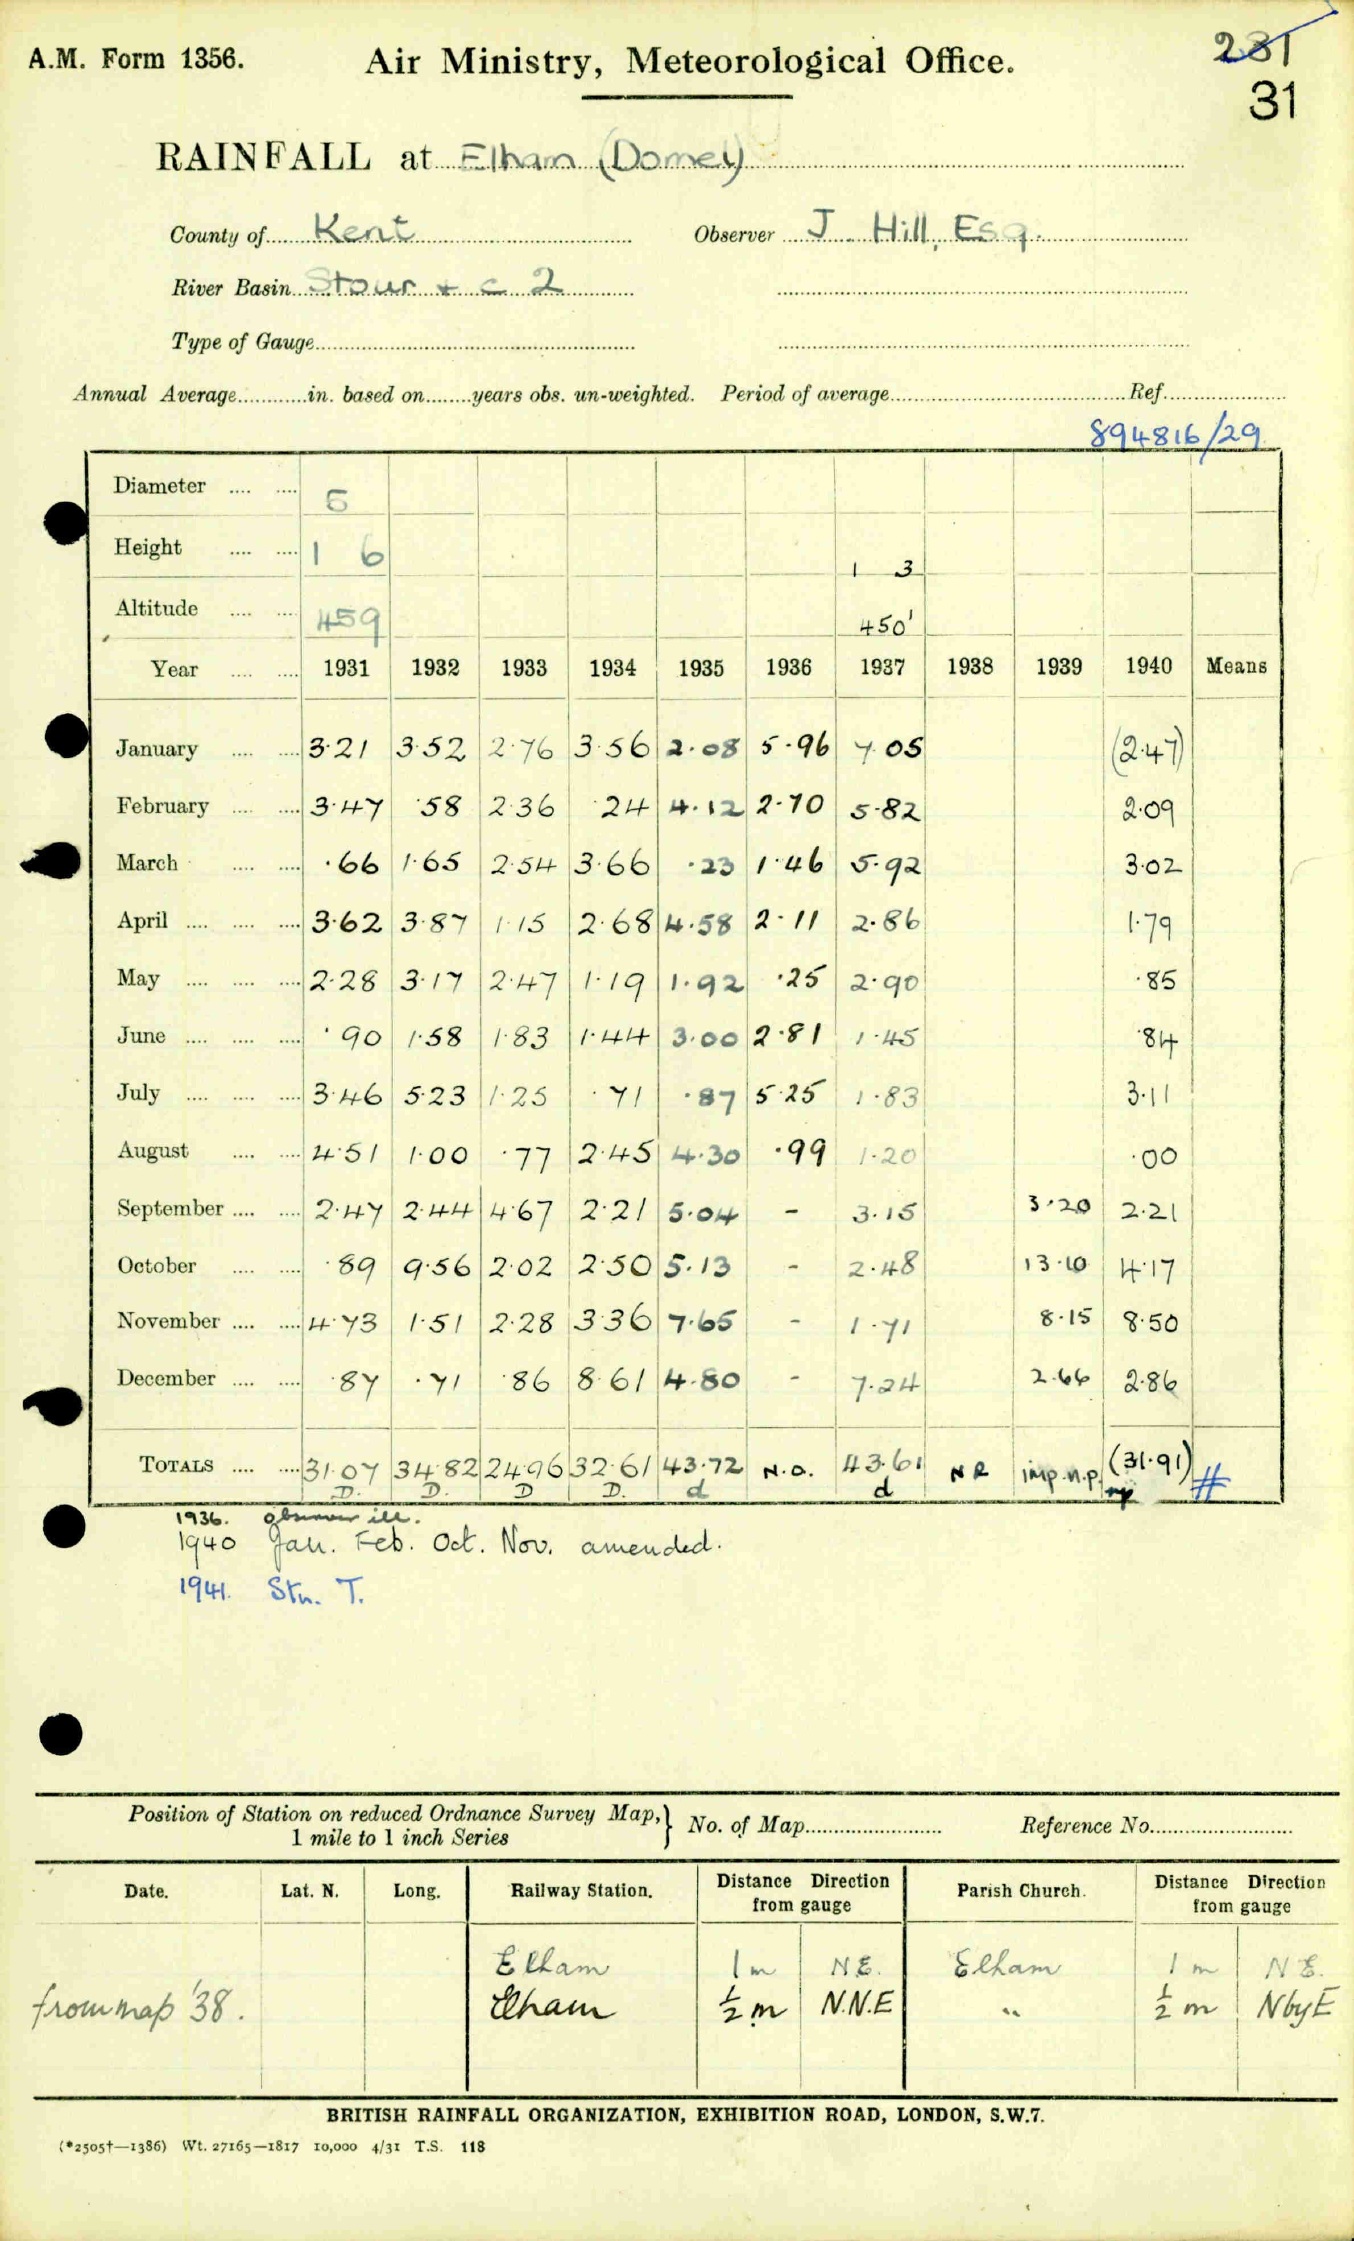 A.M. Form 1356. Air Ministry, Meteorological Office. 231
31
RAINFALL at Elham (Domey)
County of Kent Observer J Hill, Esq.
River Basin Stour + c 2
Type of Gauge
Annual Average in. based on years obs. un-weighted. Period of average Ref.
894816/29
Diameter 5
Height 1 6 1 3
Altitude 459 450'
Year 1931 1932 1933 1934 1935 1936 1937 1938 1939 1940 Means
January 3·21 3·52 2·76 3·56 2·08 5·96 7·05 (2·47)
February 3·47 ·58 2·36 ·24 4·12 2·70 5·82 2·09
March ·66 1·65 2·54 3·66 ·23 1·46 5·92 3·02
April 3·62 3·87 1·15 2·68 4·58 2·11 2·86 1·79
May 2·28 3·17 2·47 1·19 1·92 ·25 2·90 ·85
June ·90 1·58 1·83 1·44 3·00 2·81 1·45 ·84
July 3·46 5·23 1·25 ·71 ·87 5·25 1·83 3·11
August 4·51 1·00 ·77 2·45 4·30 ·99 1·20 ·00
September 2·47 2·44 4·67 2·21 5·04 - 3·15 3·20 2·21
October ·89 9·56 2·02 2·50 5·13 - 2·48 13·10 4·17
November 4·73 1·51 2·28 3·36 7·65 - 1·71 8·15 8·50
December ·87 ·71 ·86 8·61 4·80 - 7·24 2·66 2·86
TOTALS 31·07 34·82 24·96 32·61 43·72 N.O. 43·61 NR imp.n.p. (31·91) #
D. D. D D. d d np
1936. observer ill.
1940 Jan. Feb. Oct. Nov. amended.
1941. Stn. T.
Position of Station on reduced Ordnance Survey Map,} No. of Map Reference No.
1 mile to 1 inch Series
Date. Lat. N. Long. Railway Station. Distance Direction from gauge Parish Church. Distance Direction from gauge
Elham 1 m N.E. Elham 1 m N E.
from map '38. Elham ½ m N.N.E " ½ m N by E
BRITISH RAINFALL ORGANIZATION, EXHIBITION ROAD, LONDON, S.W.7.
(*2505†—1386) Wt. 27165—1817 10,000 4/31 T.S. 118